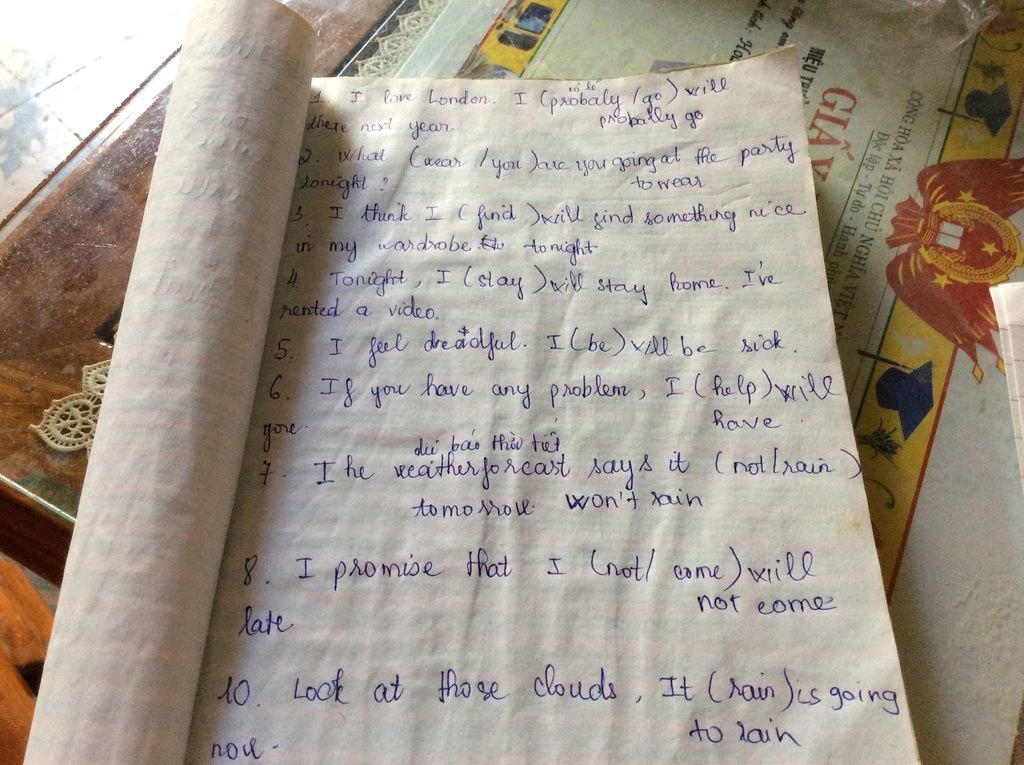 1. I love London. I (probaly / go) will
có lẽ
there next year. probally go
2. What (wear / you) are you going at the party
tonight ? to wear
3. I think I (find) will find something nice
in my wardrobe tonight
4 Tonight, I (stay) will stay home. I've
rented a video.
5. I feel dreadful. I (be) will be sick.
6. If you have any problem, I (help) will
have
dự báo thời tiết
7. The weather forecast says it (not/rain)
tomorrow. won't rain
8. I promise that I (not/ come) will
not come
late.
10. Look at those clouds, It (rain) is going
now. to rain
CỘNG HÒA XÃ HỘI CHỦ NGHĨA VIỆT N
Độc lập - Tự do - Hạnh ph
GIẤY
HIỆU TRƯ